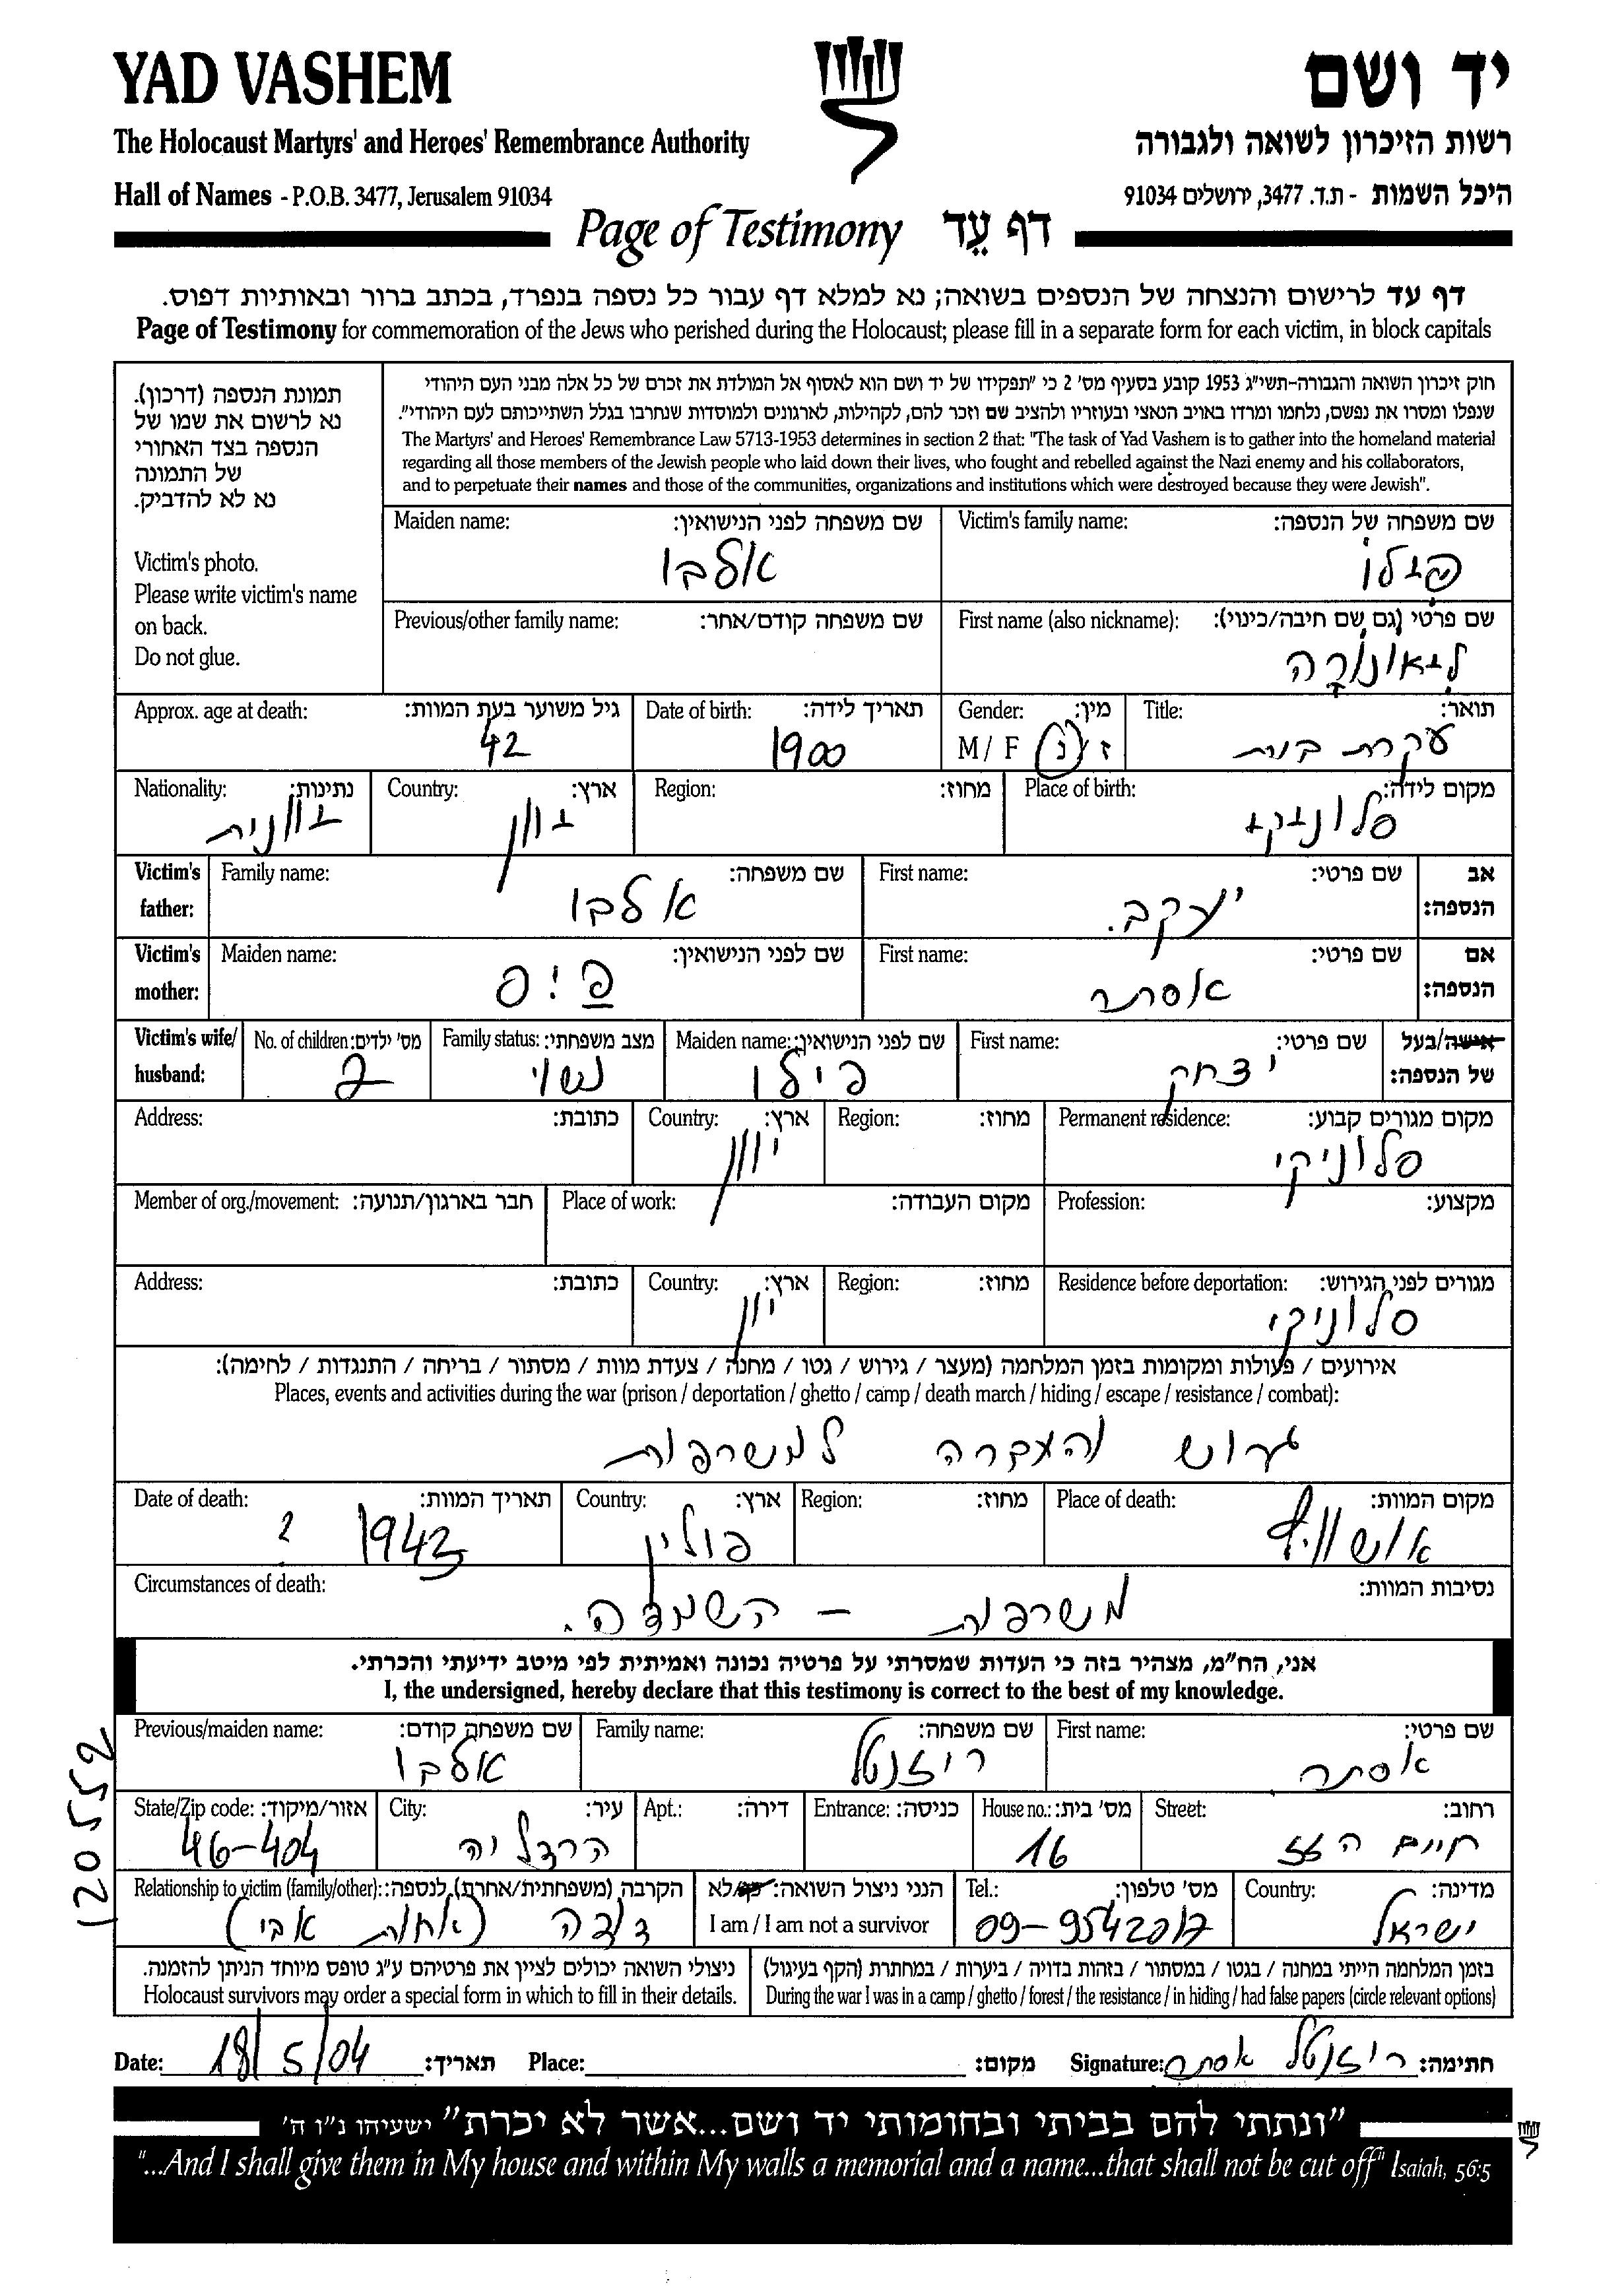 YAD VASHEM
יד ושם
The Holocaust Martyrs' and Heroes' Remembrance Authority
רשות הזיכרון לשואה ולגבורה
Hall of Names - P.O.B. 3477, Jerusalem 91034
היכל השמות - ת.ד. 3477, ירושלים 91034
Page of Testimony דף עד
דף עד לרישום והנצחה של הנספים בשואה; נא למלא דף עבור כל נספה בנפרד, בכתב ברור ובאותיות דפוס.
Page of Testimony for commemoration of the Jews who perished during the Holocaust; please fill in a separate form for each victim, in block capitals
חוק זיכרון השואה והגבורה-תשי"ג 1953 קובע בסעיף מס' 2 כי "תפקידו של יד ושם הוא לאסוף אל המולדת את זכרם של כל אלה מבני העם היהודי
שנפלו ומסרו את נפשם, נלחמו ומרדו באויב הנאצי ובעוזריו ולהציב שם וזכר להם, לקהילות, לארגונים ולמוסדות שנחרבו בגלל השתייכותם לעם היהודי".
The Martyrs' and Heroes' Remembrance Law 5713-1953 determines in section 2 that: "The task of Yad Vashem is to gather into the homeland material
regarding all those members of the Jewish people who laid down their lives, who fought and rebelled against the Nazi enemy and his collaborators,
and to perpetuate their names and those of the communities, organizations and institutions which were destroyed because they were Jewish".
תמונת הנספה (דרכון).
נא לרשום את שמו של
הנספה בצד האחורי
של התמונה
נא לא להדביק.
Victim's photo.
Please write victim's name
on back.
Do not glue.
Victim's family name: שם משפחה של הנספה:
פילו
Maiden name: שם משפחה לפני הנישואין:
אלבו
First name (also nickname): שם פרטי (גם שם חיבה/כינוי):
ליאונורה
Previous/other family name: שם משפחה קודם/אחר:
Title: תואר:
עקרת בית
Gender: מין:
M / F ז / נ
Date of birth: תאריך לידה:
1900
Approx. age at death: גיל משוער בעת המוות:
42
Place of birth: מקום לידה:
סלוניקי
Region: מחוז:
Country: ארץ:
יוון
Nationality: נתינות:
יוונית
Victim's father: אב הנספה:
First name: שם פרטי:
יעקב.
Family name: שם משפחה:
אלבו
Victim's mother: אם הנספה:
First name: שם פרטי:
אסתר
Maiden name: שם לפני הנישואין:
Victim's wife/ husband: אישה/בעל של הנספה:
First name: שם פרטי:
יצחק
Maiden name: שם לפני הנישואין:
פילו
Family status: מצב משפחתי:
נשוי
No. of children: מס' ילדים:
2
Permanent residence: מקום מגורים קבוע:
סלוניקי
Region: מחוז:
Country: ארץ:
יוון
Address: כתובת:
Profession: מקצוע:
Place of work: מקום העבודה:
Member of org./movement: חבר בארגון/תנועה:
Residence before deportation: מגורים לפני הגירוש:
סלוניקי
Region: מחוז:
Country: ארץ:
יוון
Address: כתובת:
אירועים / פעולות ומקומות בזמן המלחמה (מעצר / גירוש / גטו / מחנה / צעדת מוות / מסתור / בריחה / התנגדות / לחימה):
Places, events and activities during the war (prison / deportation / ghetto / camp / death march / hiding / escape / resistance / combat):
גרוש והעברה למשרפות
Place of death: מקום המוות:
אושוויץ
Region: מחוז:
Country: ארץ:
פולין
Date of death: תאריך המוות:
1943 ?
Circumstances of death: נסיבות המוות:
משרפות – השמדה.
אני, הח"מ, מצהיר בזה כי העדות שמסרתי על פרטיה נכונה ואמיתית לפי מיטב ידיעתי והכרתי.
I, the undersigned, hereby declare that this testimony is correct to the best of my knowledge.
First name: שם פרטי:
אסתר
Family name: שם משפחה:
רוזנטל
Previous/maiden name: שם משפחה קודם:
אלבו
120552
Street: רחוב:
חיים הזז
House no.: מס' בית:
16
Entrance: כניסה:
Apt.: דירה:
City: עיר:
הרצליה
State/Zip code: אזור/מיקוד:
46-404
Country: מדינה:
ישראל
Tel.: מס' טלפון:
09-9542017
הנני ניצול השואה: כן/לא
I am / I am not a survivor
Relationship to victim (family/other): הקרבה (משפחתית/אחרת) לנספה:
דודה (אחות אבי)
בזמן המלחמה הייתי במחנה / בגטו / במסתור / בזהות בדויה / ביערות / במחתרת (הקף בעיגול)
During the war I was in a camp / ghetto / forest / the resistance / in hiding / had false papers (circle relevant options)
ניצולי השואה יכולים לציין את פרטיהם ע"ג טופס מיוחד הניתן להזמנה.
Holocaust survivors may order a special form in which to fill in their details.
Date: 18/5/04 תאריך: Place: מקום: Signature: רוזנטל אסתר חתימה:
"ונתתי להם בביתי ובחומותי יד ושם...אשר לא יכרת" ישעיהו נ"ו ה'
"...And I shall give them in My house and within My walls a memorial and a name...that shall not be cut off" Isaiah, 56:5